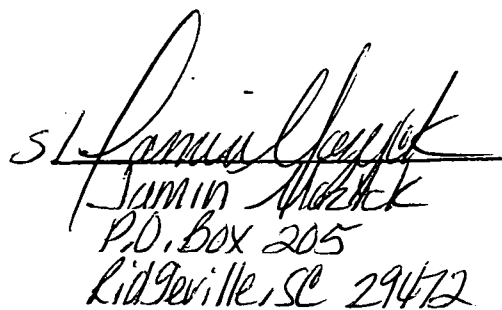 s/
Jamin
P.O. Box 205
Ridgeville, SC 29472